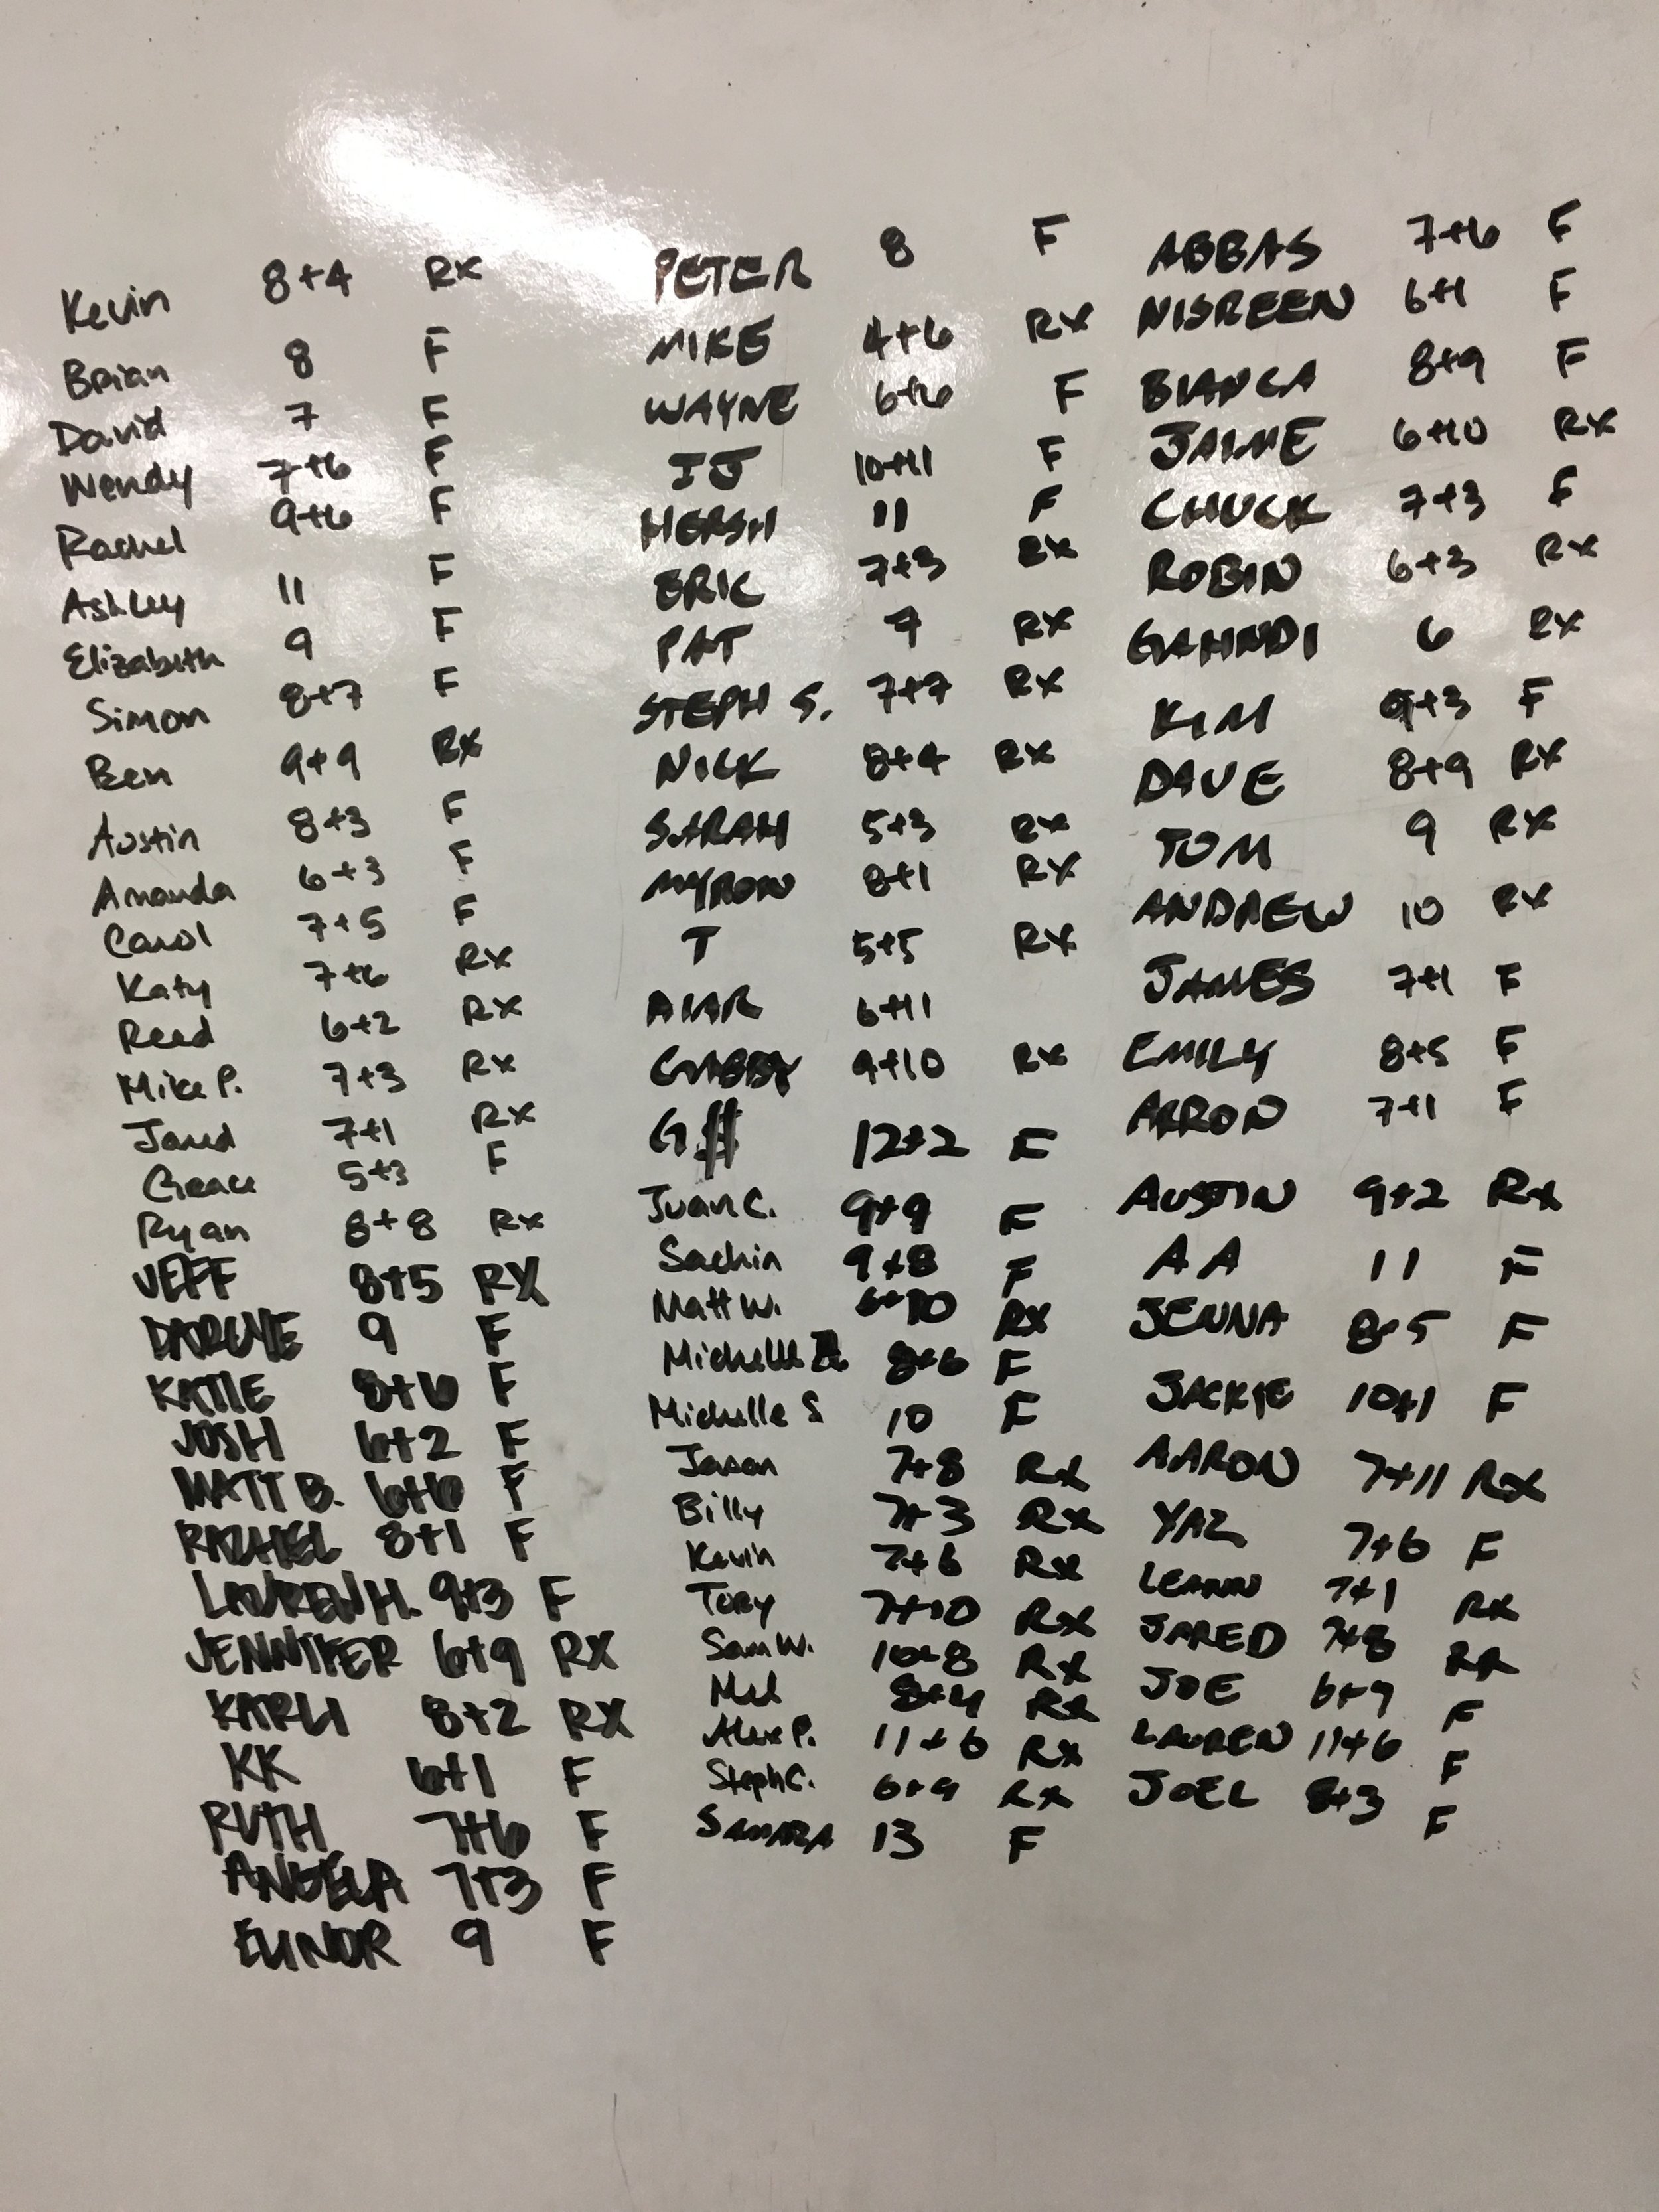 Kevin 8+4 Rx
Brian 8 F
David 7 F
Wendy 7+6 F
Rachel 9+6 F
Ashley 11 F
Elizabeth 9 F
Simon 8+7 F
Ben 9+9 Rx
Austin 8+3 F
Amanda 6+3 F
Carol 7+5 F
Katy 7+6 Rx
Reed 6+2 Rx
Mike P. 7+3 Rx
Jared 7+1 Rx
Grace 5+3 F
Ryan 8+8 Rx
JEFF 8+5 RX
9 F
KATIE 8+6 F
JOSH 6+2 F
MATT B. 6+6 F
RACHEL 8+1 F
LAUREN H. 9+3 F
JENNIFER 6+9 RX
KARLI 8+2 RX
KK 6+1 F
RUTH 7+6 F
ANGELA 7+3 F
ELINOR 9 F
PETER 8 F
MIKE 4+6 RX
WAYNE 6+6 F
IJ 10+11 F
HERSH 11 F
ERIC 7+3 RX
PAT 9 RX
STEPH S. 7+7 RX
NICK 8+4 RX
SARAH 5+3 RX
MYRON 8+1 RX
T 5+5 RX
6+11
GABBY 9+10 RX
G$ 12+2 F
Juan C. 9+9 F
Sachin 9+8 F
Matt W. 6+10 RX
Michelle 8+6 F
Michelle S 10 F
Jason 7+8 RX
Billy 7+3 RX
Kevin 7+6 RX
Tory 7+10 RX
Sam W. 10+8 RX
Mel 8+4 RX
Alex P. 11+6 RX
Steph C. 6+9 RX
SAMARA 13 F
ABBAS 7+6 F
NISREEN 6+1 F
BIANCA 8+9 F
JAIME 6+10 RX
CHUCK 7+3 F
ROBIN 6+3 RX
GAHNDI 6 RX
KIM 9+3 F
DAVE 8+9 RX
TOM 9 RX
ANDREW 10 RX
JAMES 7+1 F
EMILY 8+5 F
ARRON 7+1 F
AUSTIN 9+2 Rx
AA 11 F
JENNA 8+5 F
JACKIE 10+1 F
AARON 7+11 RX
YAZ 7+6 F
LEANN 7+1 RX
JARED 7+8 RX
JOE 6+9 F
LAUREN 11+6 F
JOEL 8+3 F